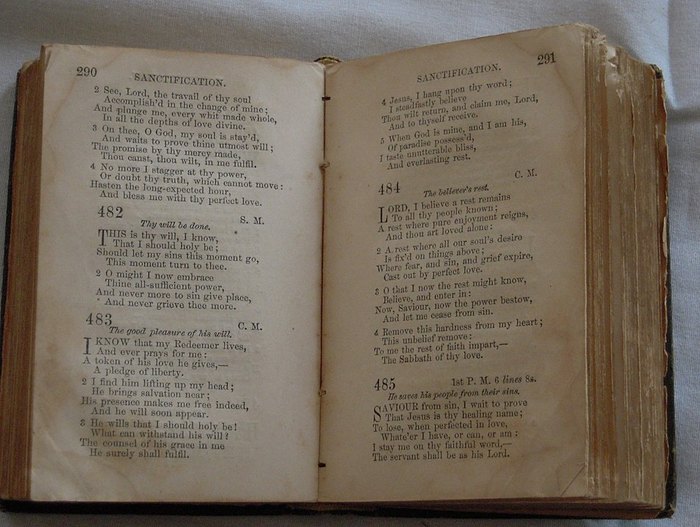 290
SANCTIFICATION.
2 See, Lord, the travail of thy soul
Accomplish'd in the change of mine;
And plunge me, every whit made whole,
In all the depths of love divine.
3 On thee, O God, my soul is stay'd,
And waits to prove thine utmost will;
The promise by thy mercy made,
Thou canst, thou wilt, in me fulfil.
4 No more I stagger at thy power,
Or doubt thy truth, which cannot move:
Hasten the long-expected hour,
And bless me with thy perfect love.
482 S. M.
Thy will be done.
THIS is thy will, I know,
That I should holy be;
Should let my sins this moment go,
This moment turn to thee.
2 O might I now embrace
Thine all-sufficient power,
And never more to sin give place,
And never grieve thee more.
483 C. M.
The good pleasure of his will.
I KNOW that my Redeemer lives,
And ever prays for me:
A token of his love he gives,—
A pledge of liberty.
2 I find him lifting up my head;
He brings salvation near;
His presence makes me free indeed,
And he will soon appear.
3 He wills that I should holy be!
What can withstand his will?
The counsel of his grace in me
He surely shall fulfil.
SANCTIFICATION.
291
4 Jesus, I hang upon thy word;
I steadfastly believe
Thou wilt return, and claim me, Lord,
And to thyself receive.
5 When God is mine, and I am his,
Of paradise possess'd,
I taste unutterable bliss,
And everlasting rest.
484 C. M.
The believer's rest.
LORD, I believe a rest remains
To all thy people known;
A rest where pure enjoyment reigns,
And thou art loved alone:
2 A rest where all our soul's desire
Is fix'd on things above;
Where fear, and sin, and grief expire,
Cast out by perfect love.
3 O that I now the rest might know,
Believe, and enter in:
Now, Saviour, now the power bestow,
And let me cease from sin.
4 Remove this hardness from my heart;
This unbelief remove:
To me the rest of faith impart,—
The Sabbath of thy love.
485 1st P. M. 6 lines 8s.
He saves his people from their sins.
SAVIOUR from sin, I wait to prove
That Jesus is thy healing name;
To lose, when perfected in love,
Whate'er I have, or can, or am;
I stay me on thy faithful word,—
The servant shall be as his Lord.